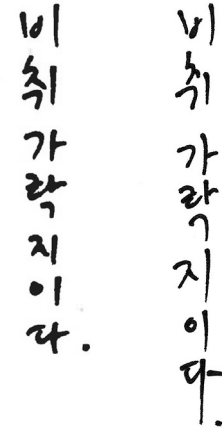 비취가락지이다.
비취가락지이다.